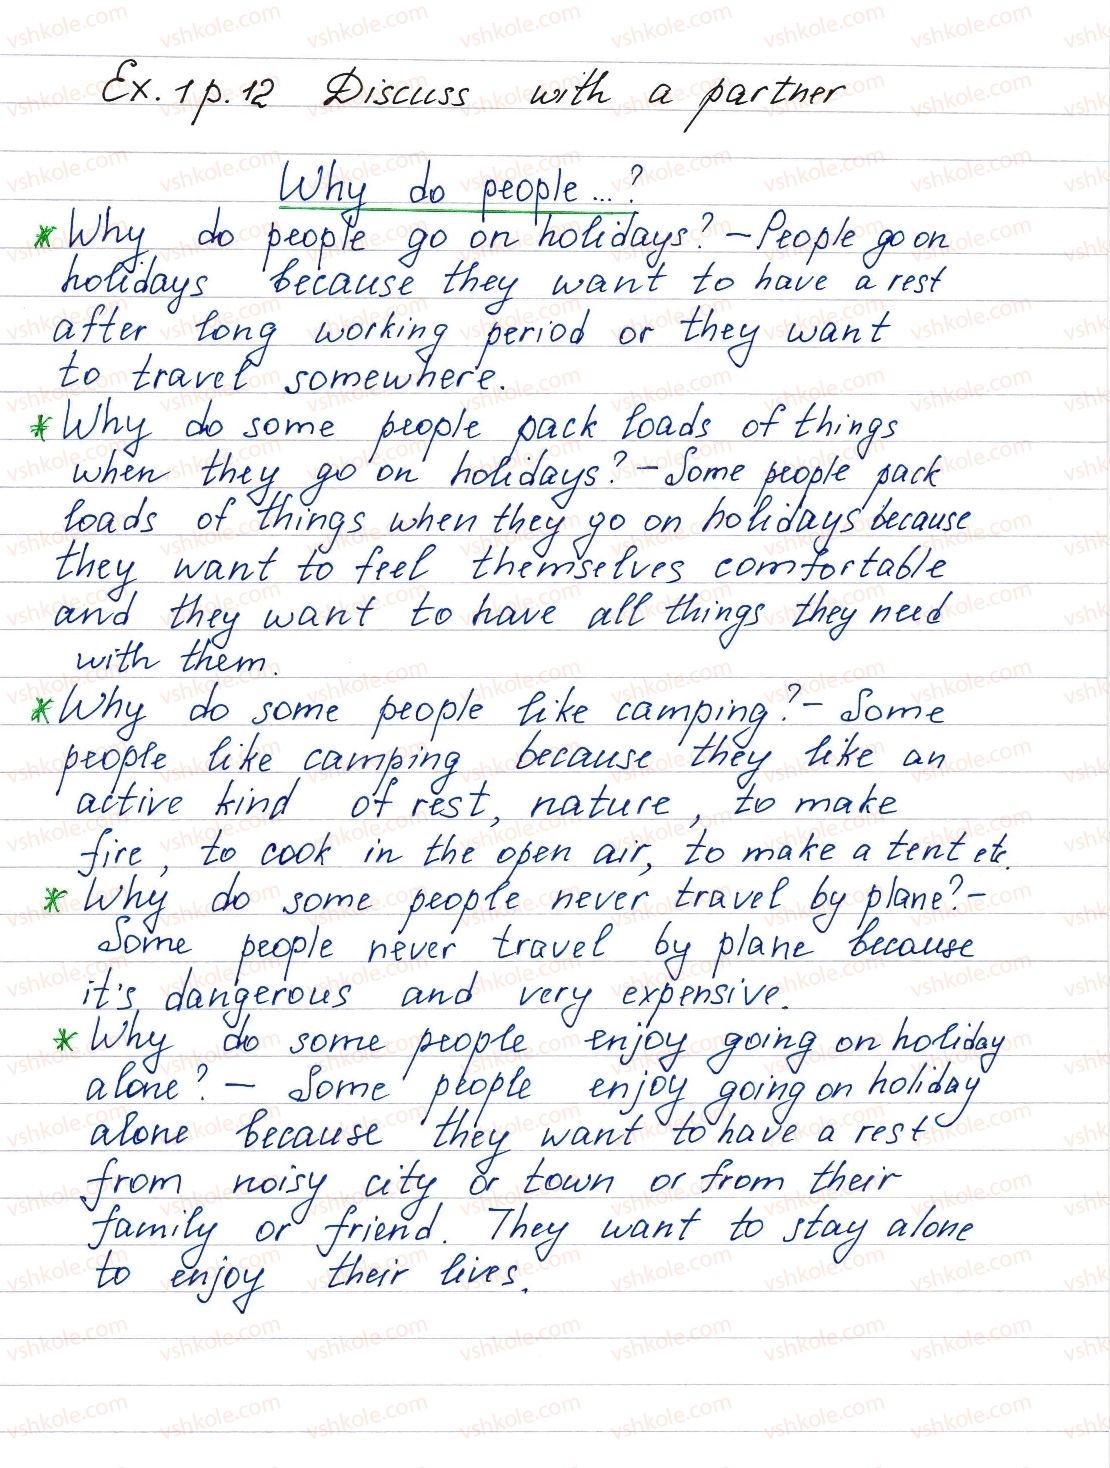 Ex. 1 p. 12 Discuss with a partner
Why do people...?
* Why do people go on holidays? – People go on
holidays because they want to have a rest
after long working period or they want
to travel somewhere.
* Why do some people pack loads of things
when they go on holidays? – Some people pack
loads of things when they go on holidays because
they want to feel themselves comfortable
and they want to have all things they need
with them.
* Why do some people like camping? – Some
people like camping because they like an
active kind of rest, nature, to make
fire, to cook in the open air, to make a tent etc.
* Why do some people never travel by plane? –
Some people never travel by plane because
it's dangerous and very expensive.
* Why do some people enjoy going on holiday
alone? – Some people enjoy going on holiday
alone because they want to have a rest
from noisy city or town or from their
family or friend. They want to stay alone
to enjoy their lives.
vshkole.com